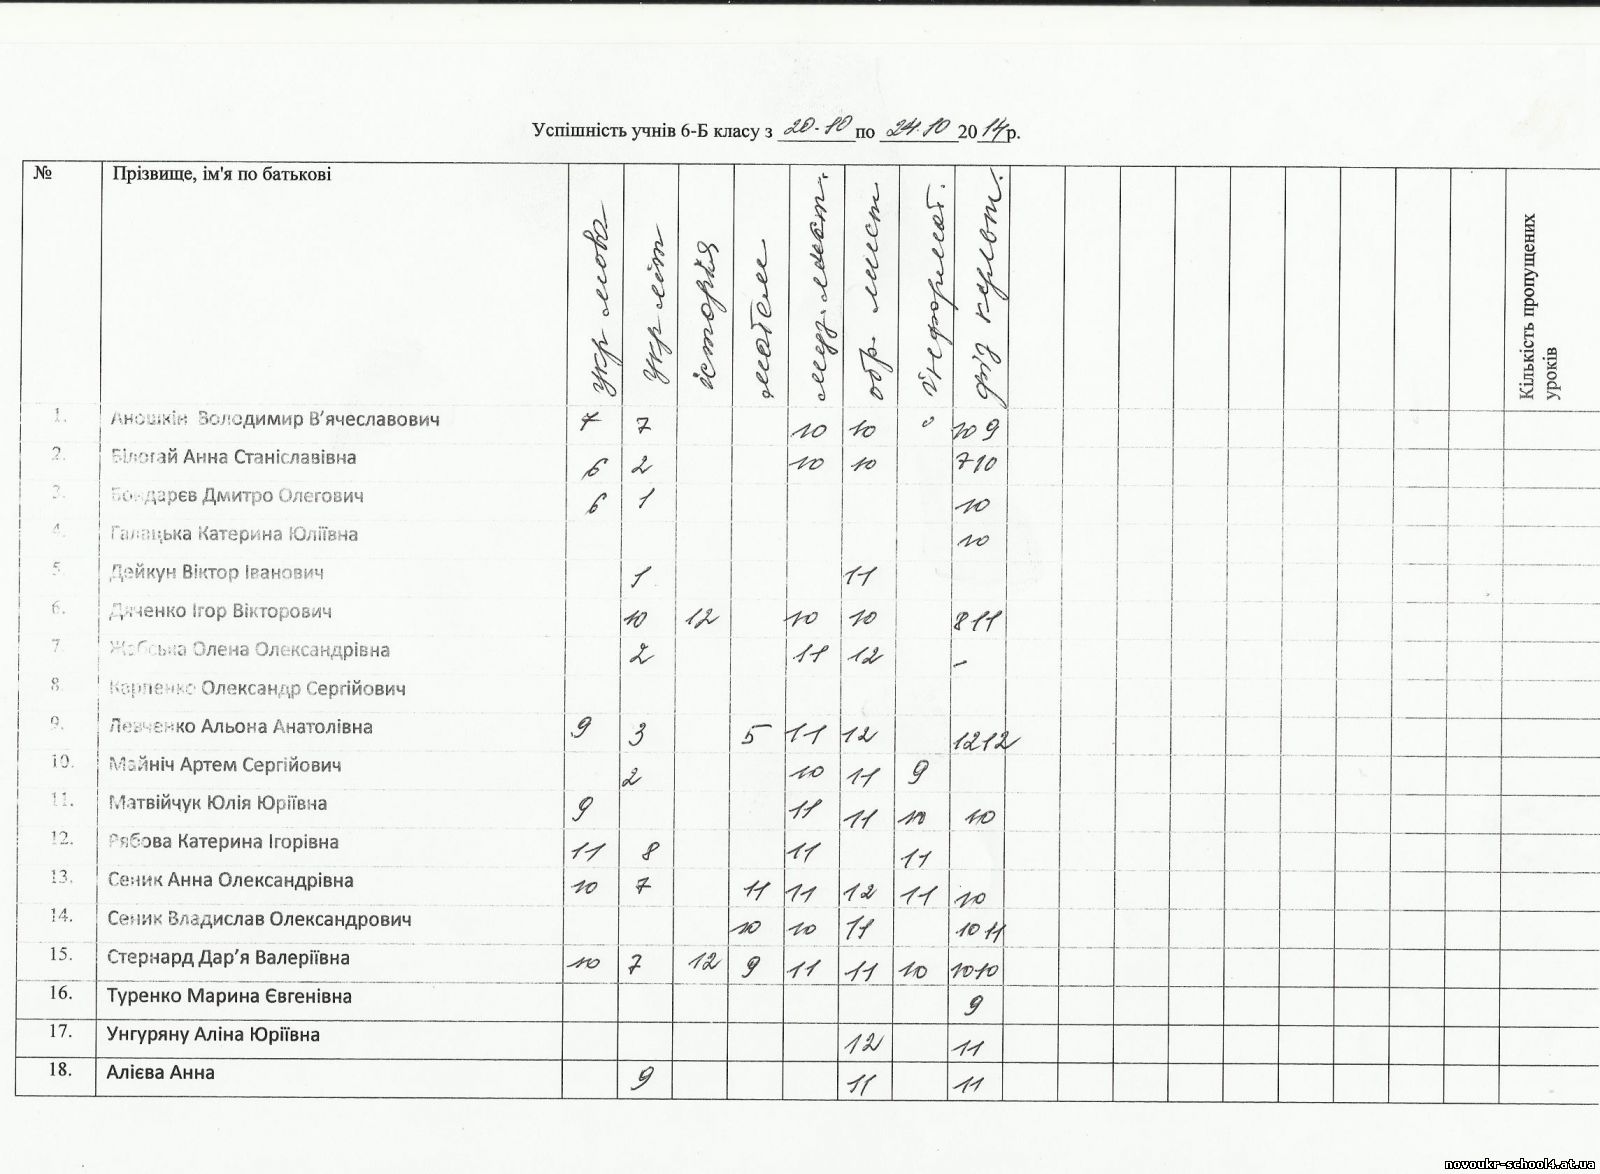 Успішність учнів 6-Б класу з 20.10 по 24.10 2014р.
№ Прізвище, ім'я по батькові укр мова укр літ історія матем муз. мист. обр. мист інформат. фіз культ. Кількість пропущених уроків
1. Аношкін Володимир В'ячеславович 7 7 10 10 10 9
2. Білогай Анна Станіславівна 6 2 10 10 7 10
3. Бондарєв Дмитро Олегович 6 1 10
4. Галацька Катерина Юліївна 10
5. Дейкун Віктор Іванович 1 11
6. Дяченко Ігор Вікторович 10 12 10 10 8 11
7. Жабська Олена Олександрівна 2 11 12 -
8 Карпенко Олександр Сергійович
9. Левченко Альона Анатолівна 9 3 5 11 12 12 12
10. Майніч Артем Сергійович 2 10 11 9
11. Матвійчук Юлія Юріївна 9 11 11 10 10
12. Рябова Катерина Ігорівна 11 8 11 11
13. Сеник Анна Олександрівна 10 7 11 11 12 11 10
14. Сеник Владислав Олександрович 10 10 11 10 11
15. Стернард Дар'я Валеріївна 10 7 12 9 11 11 10 10 10
16. Туренко Марина Євгенівна 9
17. Унгуряну Аліна Юріївна 12 11
18. Алієва Анна 9 11 11
novoukr-school4.at.ua